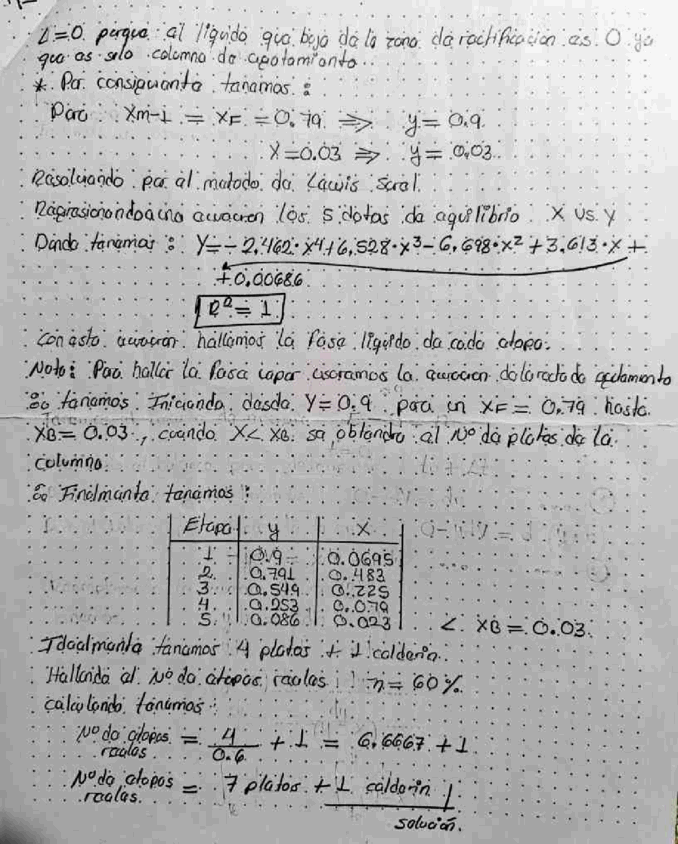 L=0. porque al líquido que baja de la zona de rectificación es 0 ya
que es solo columna de agotamiento.
* Por consiguiente tenemos:
Para Xm-1 = XF = 0.79 ⇒ y = 0.9
X = 0.03 ⇒ y = 0.03
Resolviendo por el metodo de Lewis Sorel.
los 5 datos de equilibrio X vs. Y
Donde tenemos: Y = -2,462·x⁴ + 6,528·x³ - 6,698·x² + 3.613·x +
+0.00686
R² = 1
con esta ecuacion hallamos la fase liquida de cada etapa.
Nota: Para hallar la fase vapor usaremos la ecuacion de la recta de agotamiento
∴ tenemos: Iniciando desde Y = 0.9 para un XF = 0.79 hasta
XB = 0.03, cuando X < XB. se obtendra el Nº de platos de la
columna.
∴ Finalmente tenemos:
Etapa y x
1 0.9 0.0695
2 0.791 0.483
3 0.549 0.225
4 0.253 0.079
5. 0.086 0.023 < XB = 0.03.
Idealmente tenemos 4 platos + 1 calderin.
Hallando el Nº de etapas reales n = 60%
calculando tenemos:
Nº de etapas reales = 4/0.6 + 1 = 6.6667 + 1
Nº de etapas reales. = 7 platos + 1 calderin
solución.